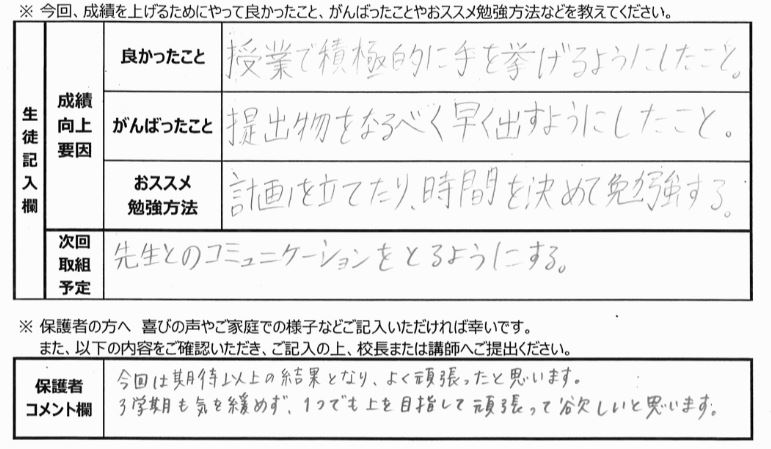 ※ 今回、成績を上げるためにやって良かったこと、がんばったことやおススメ勉強方法などを教えてください。
生徒記入欄
成績向上要因
良かったこと
授業で積極的に手を挙げるようにしたこと。
がんばったこと
提出物をなるべく早く出すようにしたこと。
おススメ
勉強方法
計画を立てたり、時間を決めて勉強する。
次回
取組
予定
先生とのコミュニケーションをとるようにする。
※ 保護者の方へ 喜びの声やご家庭での様子などご記入いただければ幸いです。
また、以下の内容をご確認いただき、ご記入の上、校長または講師へご提出ください。
保護者
コメント欄
今回は期待以上の結果となり、よく頑張ったと思います。
3学期も気を緩めず、1つでも上を目指して頑張って欲しいと思います。